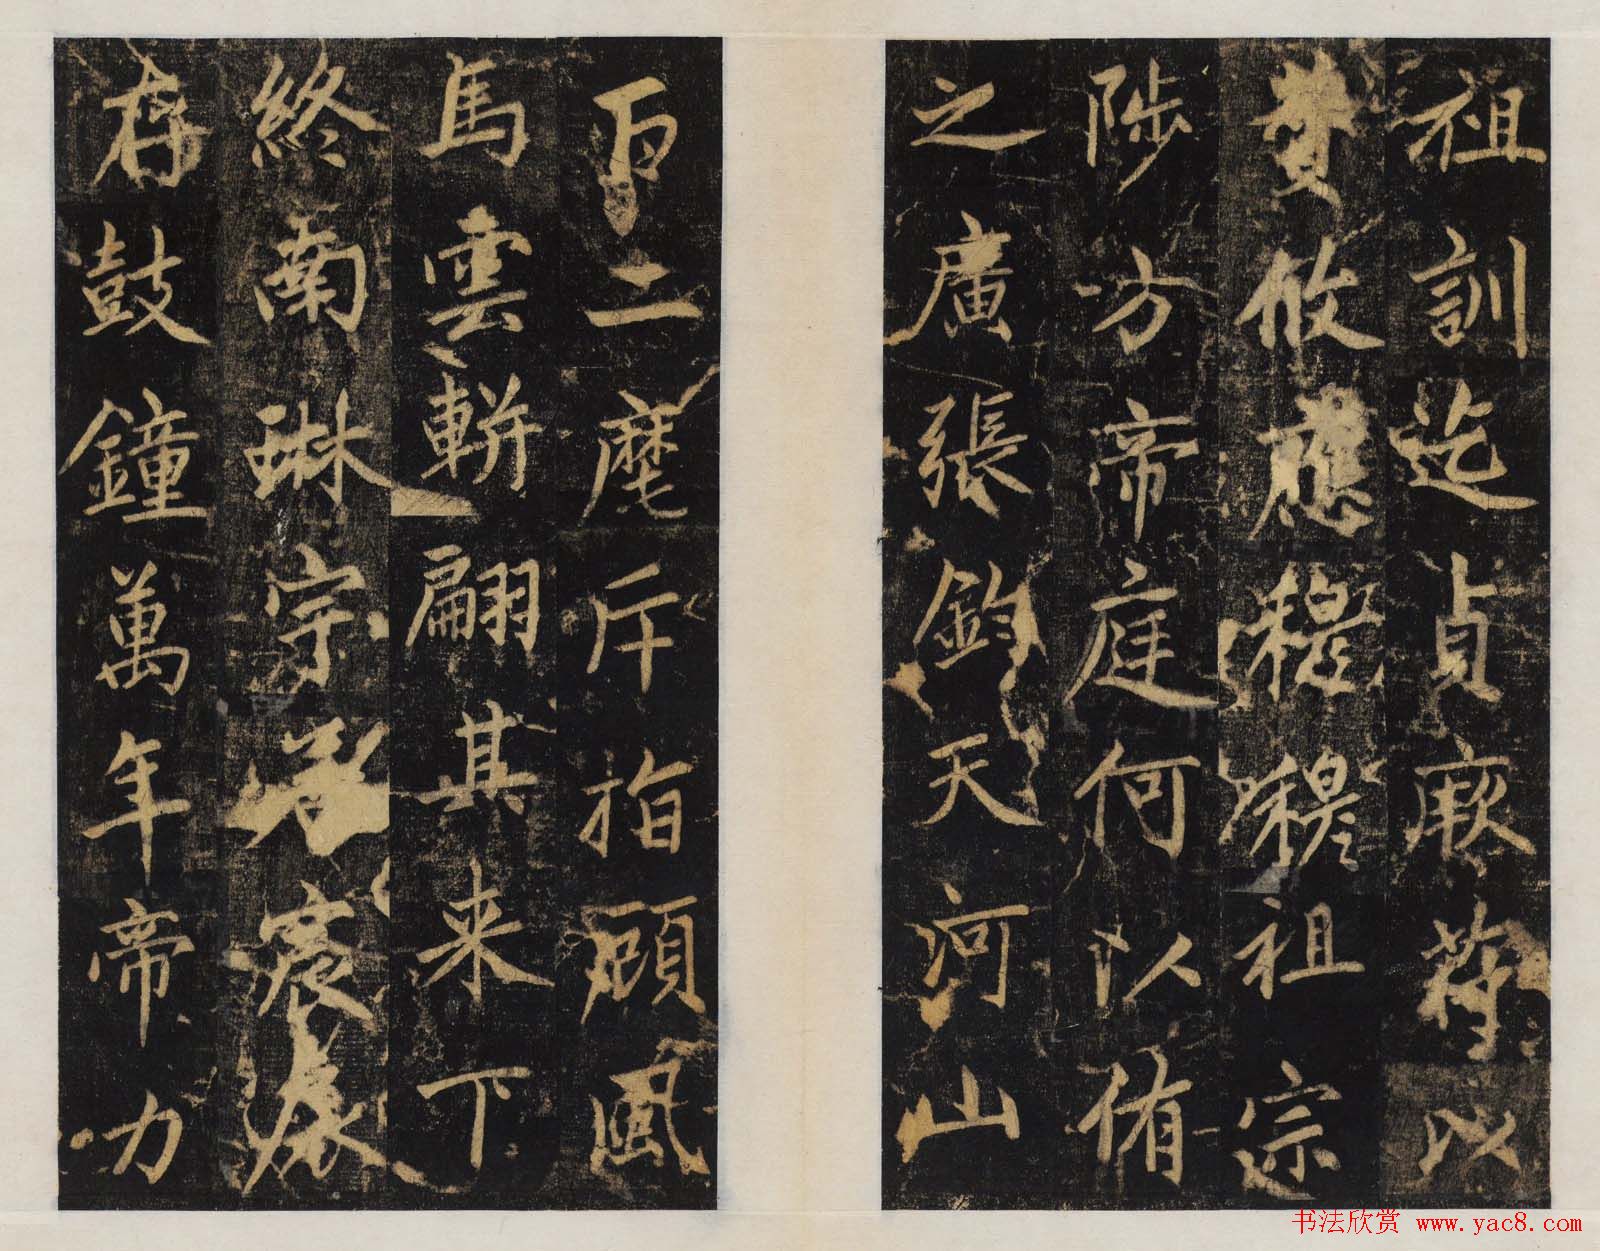 祖訓迄貞厥符以
贊攸應穆穆祖宗
陟方帝庭何以侑
之廣張鈞天河山
百二麾斥指顧風
馬雲軿翩其来下
終南琳宇
存鼓鐘萬年帝力
书法欣赏 www.yac8.com